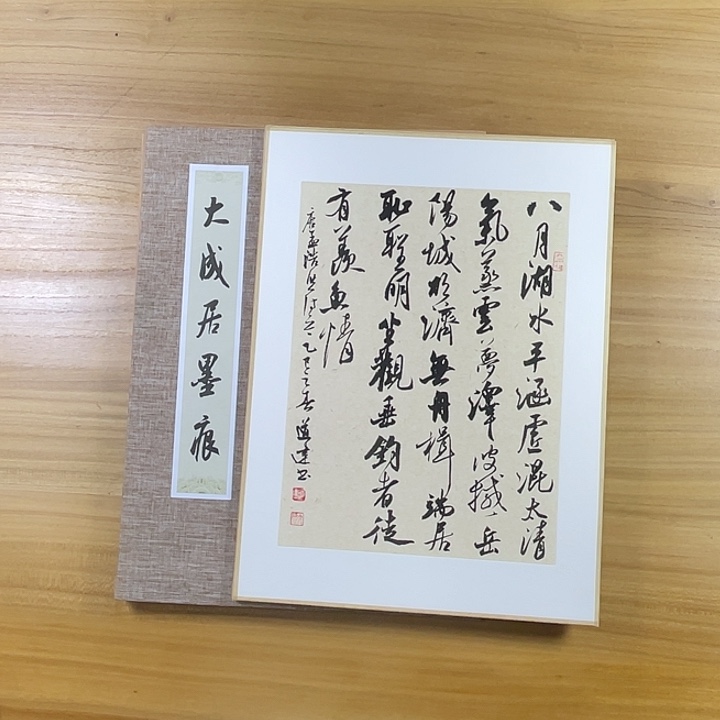 八月湖水平涵虛混太清
氣蒸雲夢澤波撼岳
陽城欲濟無舟楫端居
恥聖明坐觀垂釣者徒
有羨魚情
唐孟浩然詩 乙春道達書
大成居墨痕